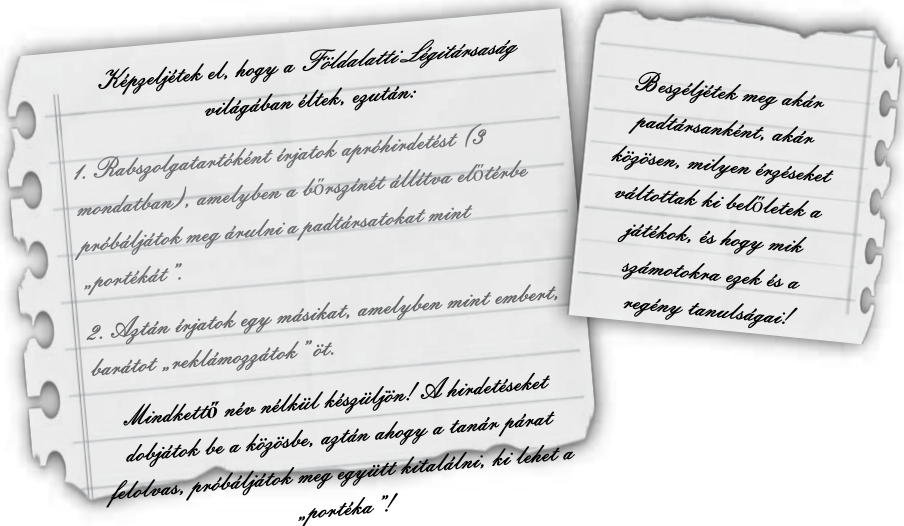 Képzeljétek el, hogy a Földalatti Légitársaság
világában éltek, ezután:
1. Rabszolgatartóként írjatok apróhirdetést (3
mondatban), amelyben a bőrszínét állítva előtérbe
próbáljátok meg árulni a padtársatokat mint
„portékát”.
2. Aztán írjatok egy másikat, amelyben mint embert,
barátot „reklámozzátok” őt.
Mindkettő név nélkül készüljön! A hirdetéseket
dobjátok be a közösbe, aztán ahogy a tanár párat
felolvas, próbáljátok meg együtt kitalálni, ki lehet a
„portéka”!
Beszéljétek meg akár
padtársanként, akár
közösen, milyen érzéseket
váltottak ki belőletek a
játékok, és hogy mik
számotokra ezek és a
regény tanulságai!